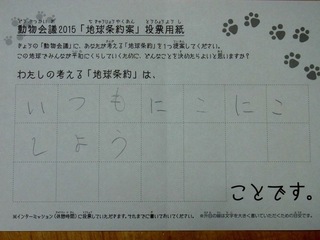 動物会議2015「地球条約案」投票用紙
きょうの「動物会議」に、あなたが考える「地球条約」を1つ提案してください。
この地球でみんなが平和にくらしていくために、どんなことを決めたらよいと思いますか?
わたしの考える「地球条約」は、
いつもにこにこ
しよう
ことです。
※インターミッション(休憩時間)に投票していただきます。それまでに書いておいてください。